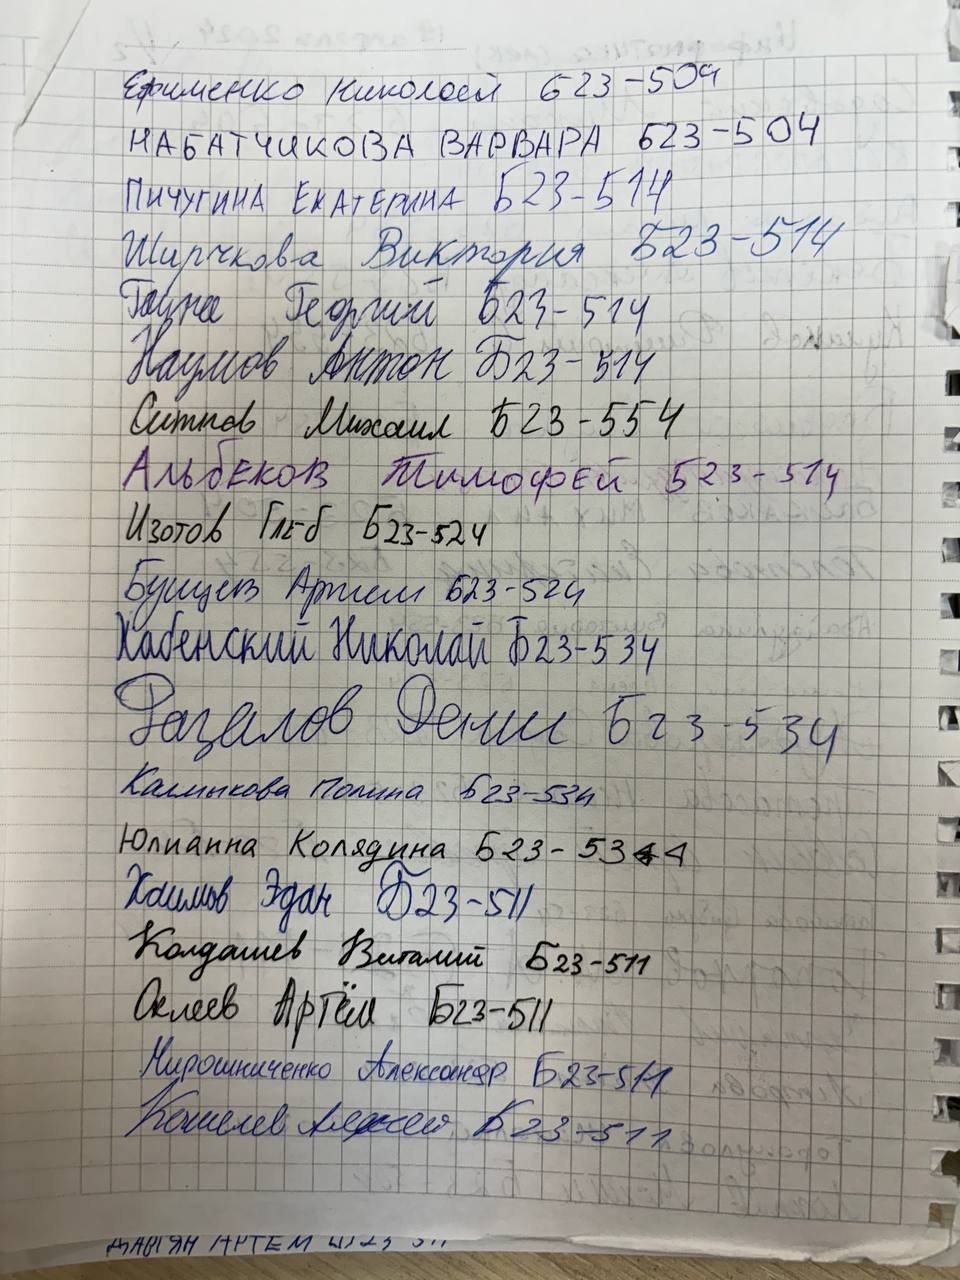 Ефименко Николай Б23-504
НАБАТЧИКОВА ВАРВАРА Б23-504
ПИЧУГИНА ЕКАТЕРИНА Б23-514
Ширчкова Виктория Б23-514
Георгий Б23-514
Наумов Антон Б23-514
Ситнов Михаил Б23-554
Альбеков Тимофей Б23-514
Изотов Глеб Б23-524
Артем Б23-524
Хабенский Николай Б23-534
Денис Б23-534
Калмыкова Полина Б23-534
Юлианна Колядина Б23-534
Хаимов Эдан Б23-511
Колдашев Виталий Б23-511
Оклеев Артём Б23-511
Мирошниченко Александр Б23-511
Кошелев Алексей Б23-511
АРТЕМ